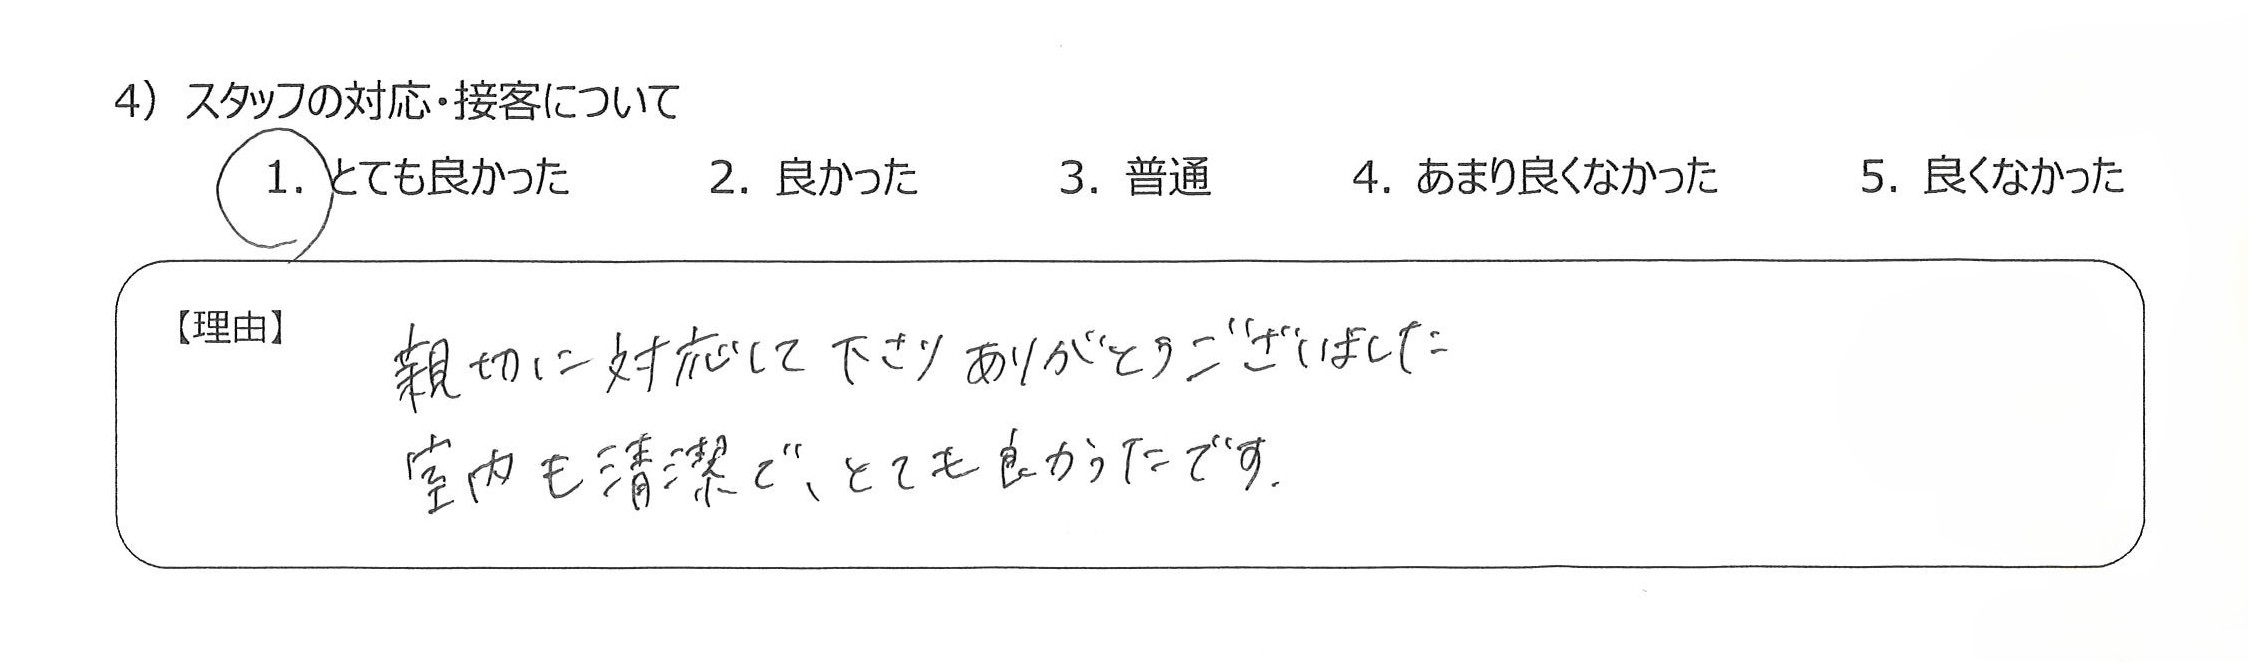 4) スタッフの対応・接客について
1. とても良かった 2. 良かった 3. 普通 4. あまり良くなかった 5. 良くなかった
【理由】
親切に対応して下さりありがとうございました
室内も清潔で、とても良かったです.